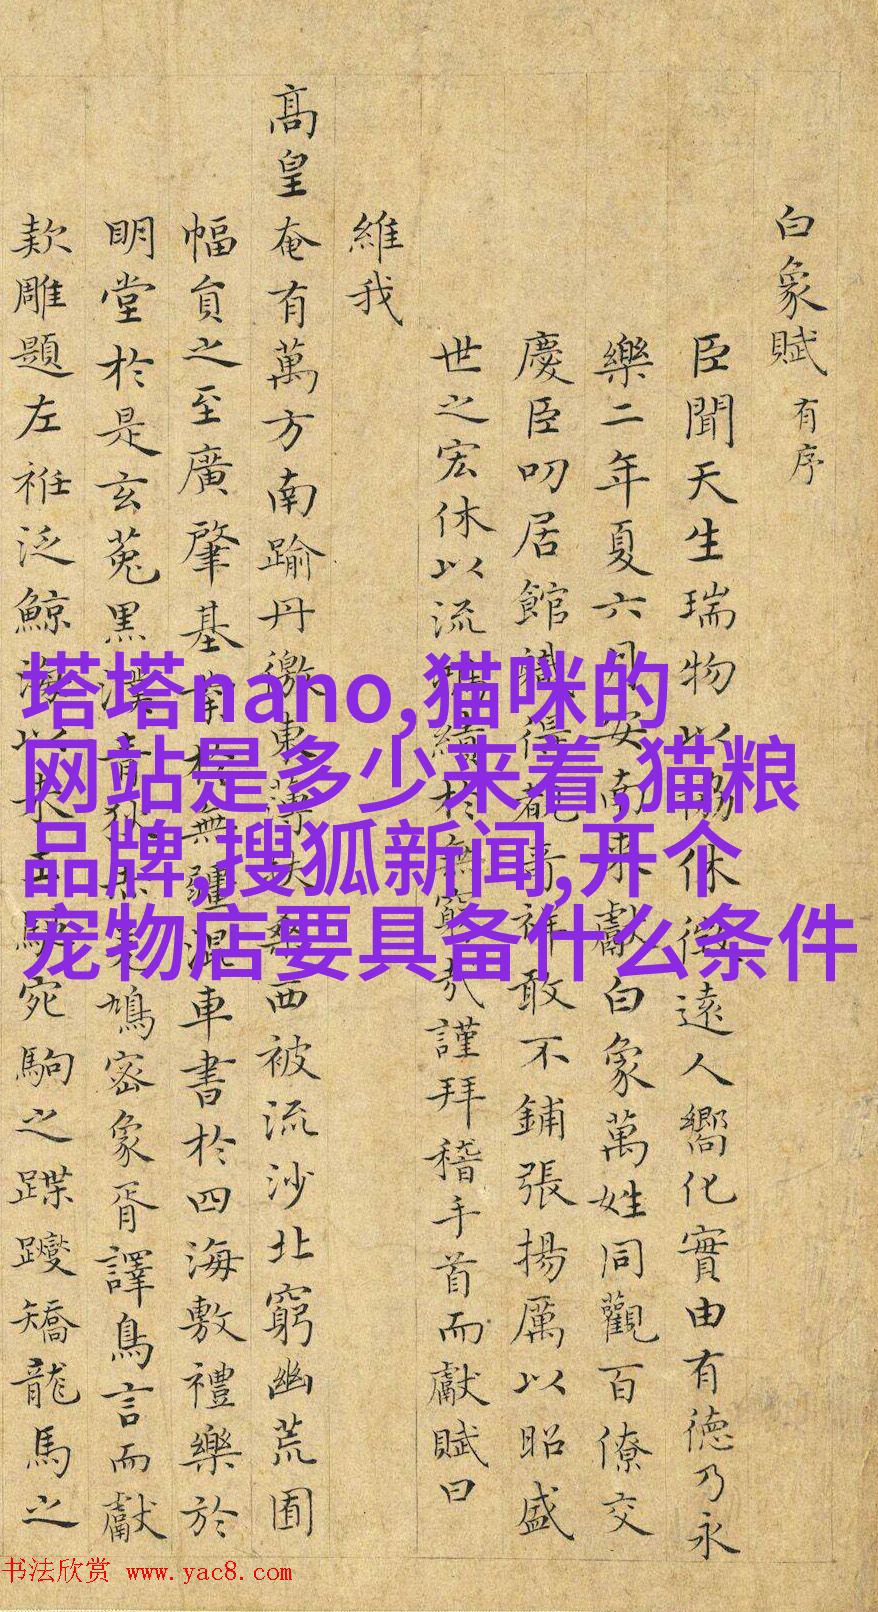 白象賦 有序
臣聞天生瑞物以協休徵遠人嚮化實由有德乃永
樂二年夏六月安南來獻白象萬姓同觀百僚交
慶臣叨居館職得睹嘉祥敢不鋪張揚厲以昭盛
世之宏休以流績於無窮哉謹拜稽手首而獻賦曰
維我
高皇奄有萬方南踰丹徼東薄扶桑西被流沙北窮幽荒
幅員之至廣肇基於無疆混車書於四海敷禮樂於
明堂於是玄菟黑漠青鳩密象胥譯鳥言而獻
欵雕題左衽泛鯨海以來王宛駒之蹀躞矯龍馬之
塔塔nano,猫咪的
网站是多少来着,猫粮
品牌,搜狐新闻,开个
宠物店要具备什么条件
书法欣赏 www.yac8.com